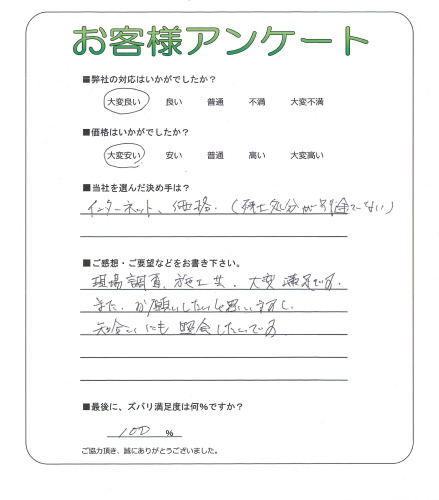 お客様アンケート
■弊社の対応はいかがでしたか？
大変良い 良い 普通 不満 大変不満
■価格はいかがでしたか？
大変安い 安い 普通 高い 大変高い
■当社を選んだ決め手は？
インターネット、価格.（残土処分が別金でない）
■ご感想・ご要望などをお書き下さい。
現場調査、施工共、大変満足です.
また、お願いしたいと思いますし、
知合いにも照会したいです
■最後に、ズバリ満足度は何％ですか？
100 ％
ご協力頂き、誠にありがとうございました。